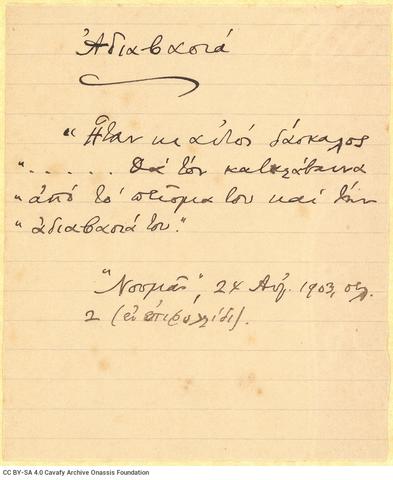 Ἀδιαβασιά
"Ἦταν κι αὐτὸς δάσκαλος
"..... Θὰ τὸν καταλάβαινα
"ἀπὸ τὸ πεῖσμα του καὶ τὴν
"ἀδιαβασιά του."
"Νουμᾶς", 24 Αὐγ. 1903, σελ.
2 (ἐν ἐπιφυλλίδι).
CC BY-SA 4.0 Cavafy Archive Onassis Foundation